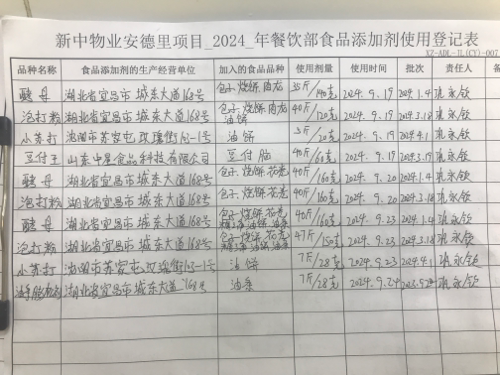 XZ-ADL-JL(CY)-007
新中物业安德里项目_2024_年餐饮部食品添加剂使用登记表
品种名称 食品添加剂的生产经营单位 加入的食品品种 使用剂量 使用时间 批次 责任人 备
酵母 湖北省宜昌市城东大道168号 包子.烧饼.肉龙 35斤/140克 2024.9.19 2024.1.4 张永钦
泡打粉 湖北省宜昌市城东大道168号 包子.烧饼.肉龙 油饼 40斤/120克 2024.9.19 2024.3.18 张永钦
小苏打 油饼 5斤/20克 2024.9.19 2024.4.1 张永钦
豆付王 山东中昊食品科技有限公司 豆付脑 40斤/60克 2024.9.19 张永钦
酵母 湖北省宜昌市城东大道168号 包子.烧饼.花卷 40斤/160克 2024.9.20 2024.1.4 张永钦
泡打粉 湖北省宜昌市城东大道168号 包子.烧饼.花卷 40斤/160克 2024.9.20 2024.3.18 张永钦
酵母 湖北省宜昌市城东大道168号 包子.烧饼.花卷 40斤/160克 2024.9.23 2024.1.4 张永钦
泡打粉 湖北省宜昌市城东大道168号 包子.烧饼.花卷 47斤/150克 2024.9.23 2024.3.18 张永钦
小苏打 油饼 7斤/28克 2024.9.23 2024.4.1 张永钦
湖北省宜昌市城东大道168号 油条 7斤/28克 2024.9.24 张永钦